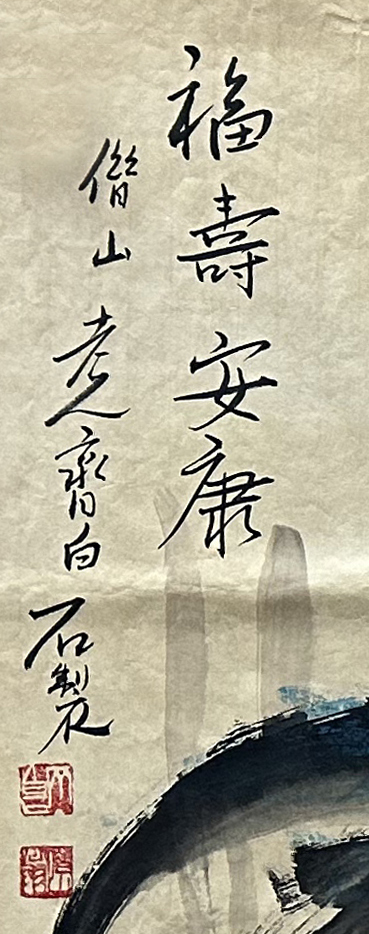 福壽安康
借山老人齊白石製